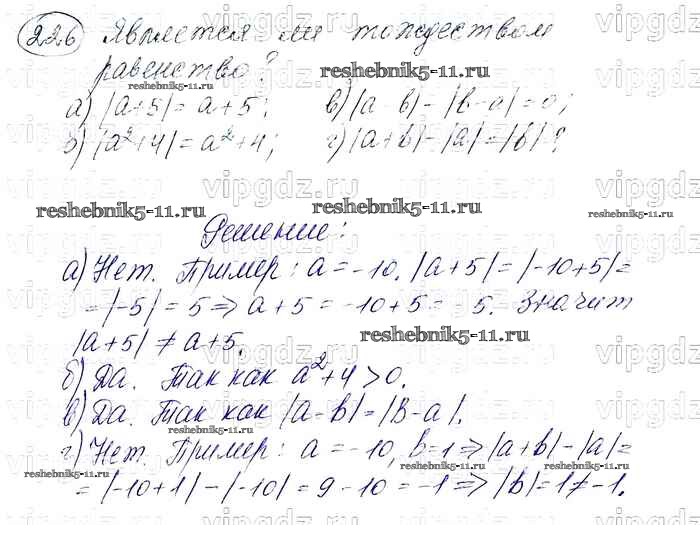 226 Является ли тождеством
равенство?
а) |a+5| = a+5; в) |a-b| - |b-a| = 0;
б) |a²+4| = a²+4; г) |a+b| - |a| = |b|?
Решение:
а) Нет. Пример: a = -10. |a+5| = |-10+5| =
= |-5| = 5 => a+5 = -10+5 = 5. Значит
|a+5| ≠ a+5.
б) Да. Так как a²+4 > 0.
в) Да. Так как |a-b| = |B-a|.
г) Нет. Пример: a = -10, b=1 => |a+b| - |a| =
= |-10+1| - |-10| = 9 - 10 = -1 => |b| = 1 ≠ -1.
vipgdz.ru
reshebnik5-11.ru